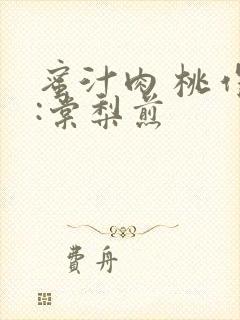 蜜汁肉桃作
:棠梨煎
费舟